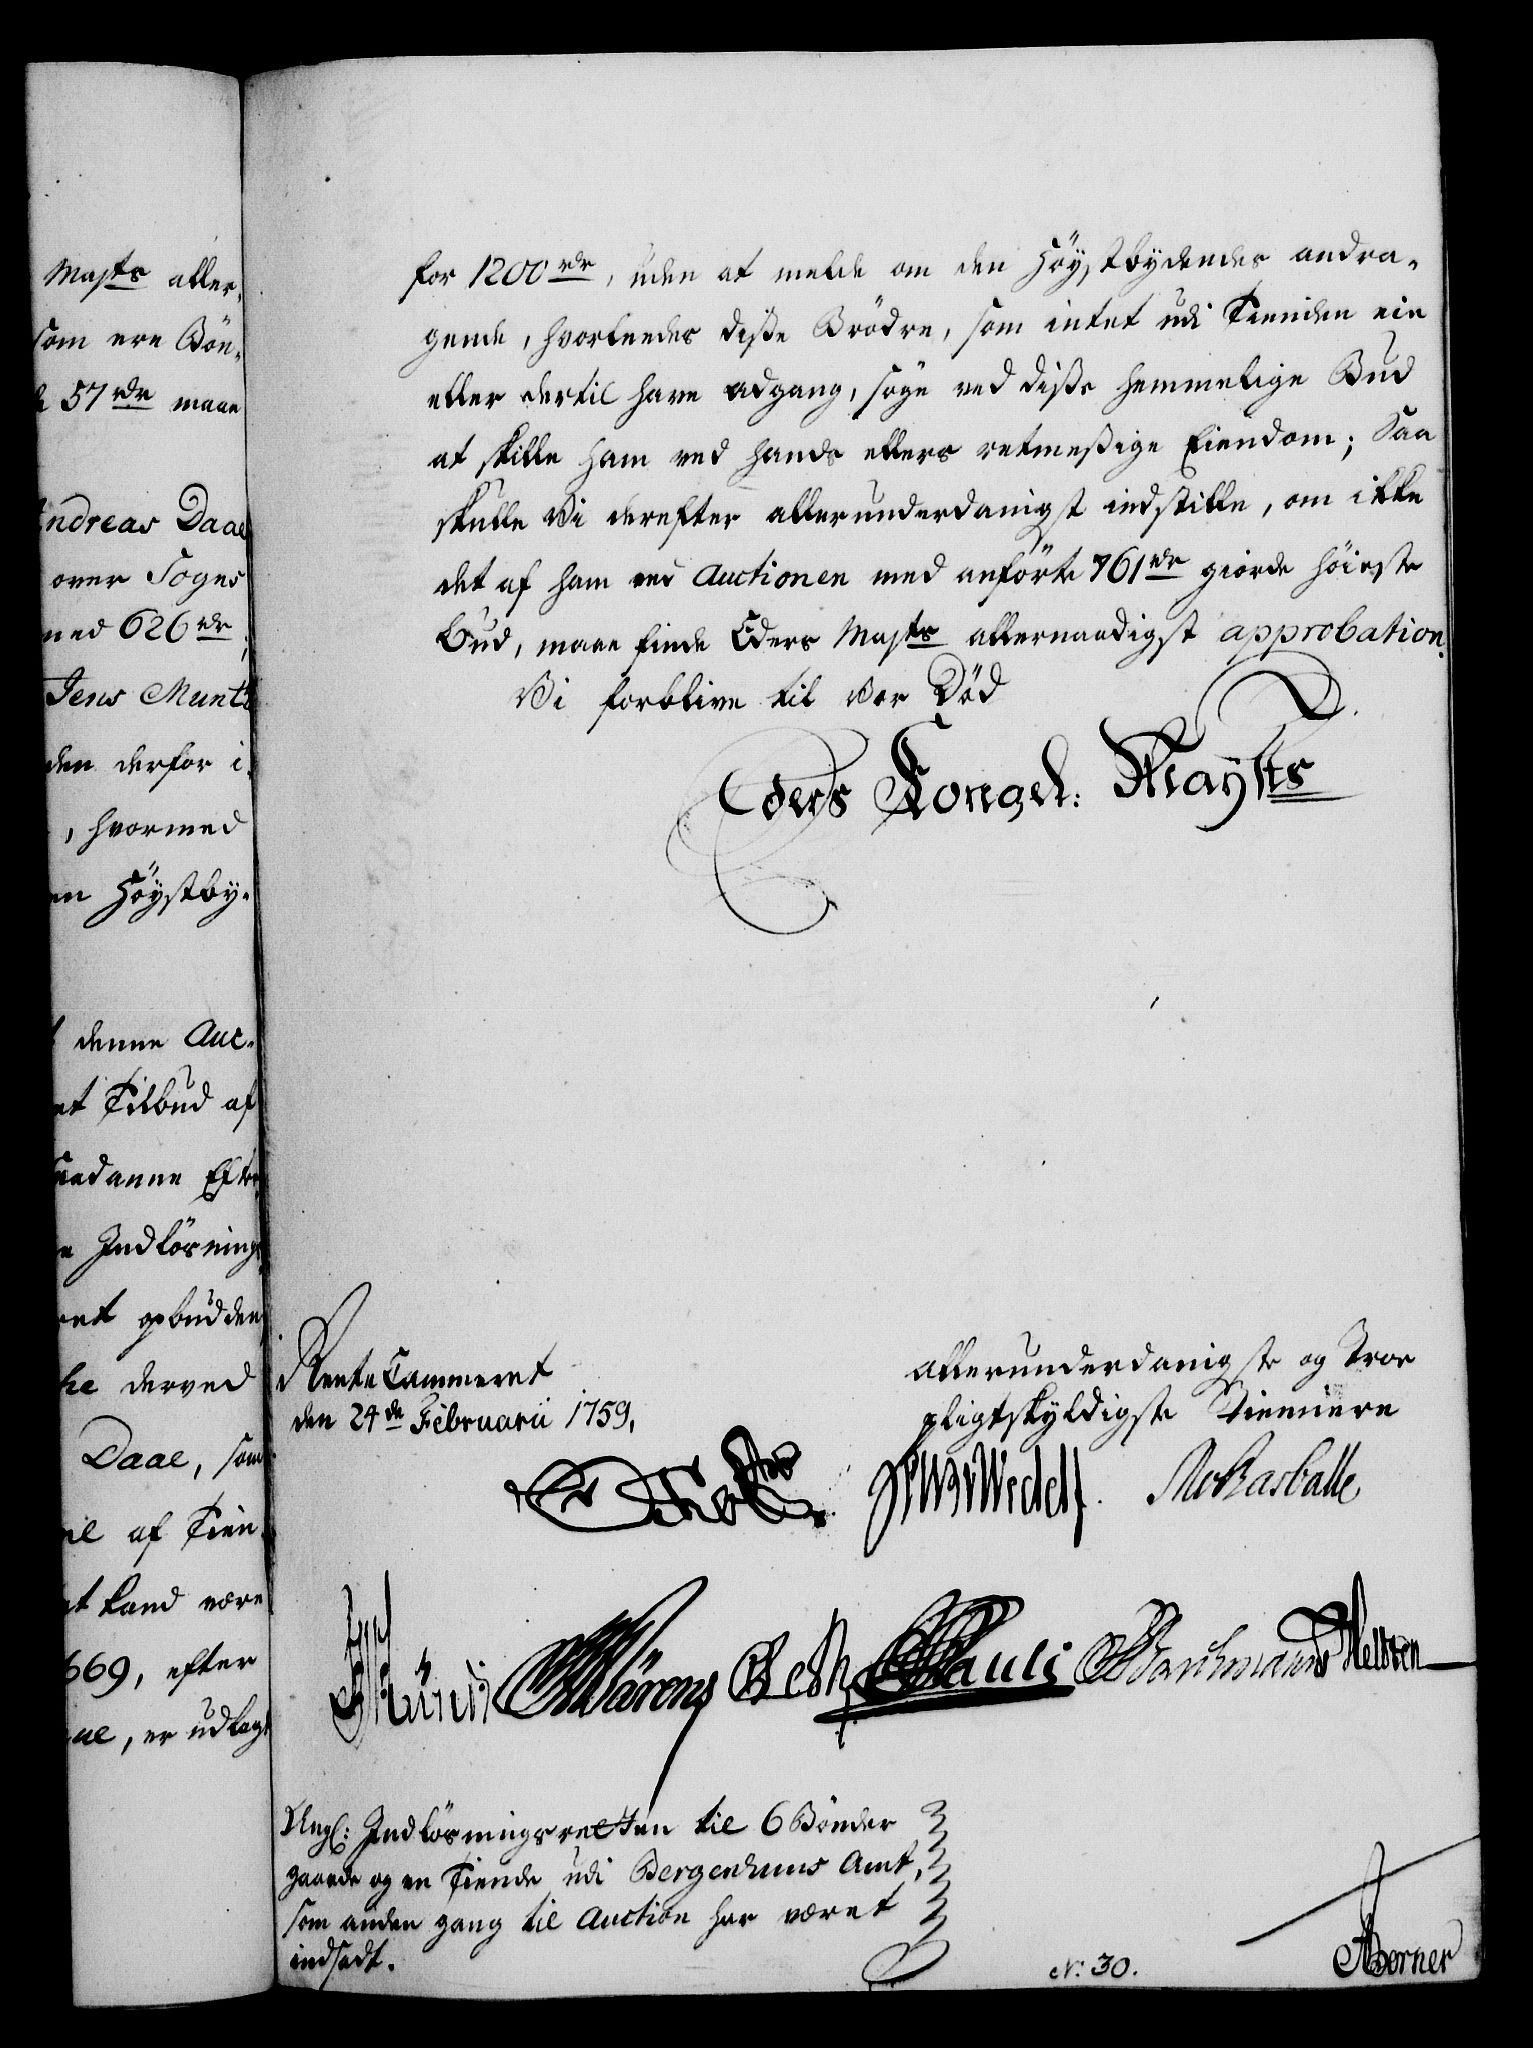 Majts aller-
som ere Bøn-
57 rdr maae
Andreas Daae
over Sogns
med 626 rdr
Jens Munt
den derfor i-
, hvormed
en Höystby-
denne Auc-
et Tilbud af
saadanne Eft
Indlösnings
ret opbudden
derved
Daae, som
af Tien-
land være
1669, efter
, er udlagt
for 1200 rdr, uden at melde om den Höystbydendes andra-
gende, hvorledes diße Brödre, som intet udi Tienden eie
eller dertil have adgang, söge ved diße hemmelige Bud
at skille ham ved hands ellers retmeßige Eiendom; Saa
skulle Vi derefter allerunderdanigst indstille, om ikke
det af ham ved Auctionen med anförte 761 rdr giorde höieste
Bud, maae finde Eders Majts allernaadigst approbation.
Vi forblive til vor Död
Eders Kongel: Mayts
RenteCammeret
den 24de Februarii 1759.
allerunderdanigste og Troe
pligtskyldigste Tienniere
Wedell
Beth Pauli
Angl: Indlösningsretten til 6 Bönder
gaarde og en Tiende udi Bergenhuus Amt,
som anden gang til Auction har været
indsadt.
N: 30.
Berner